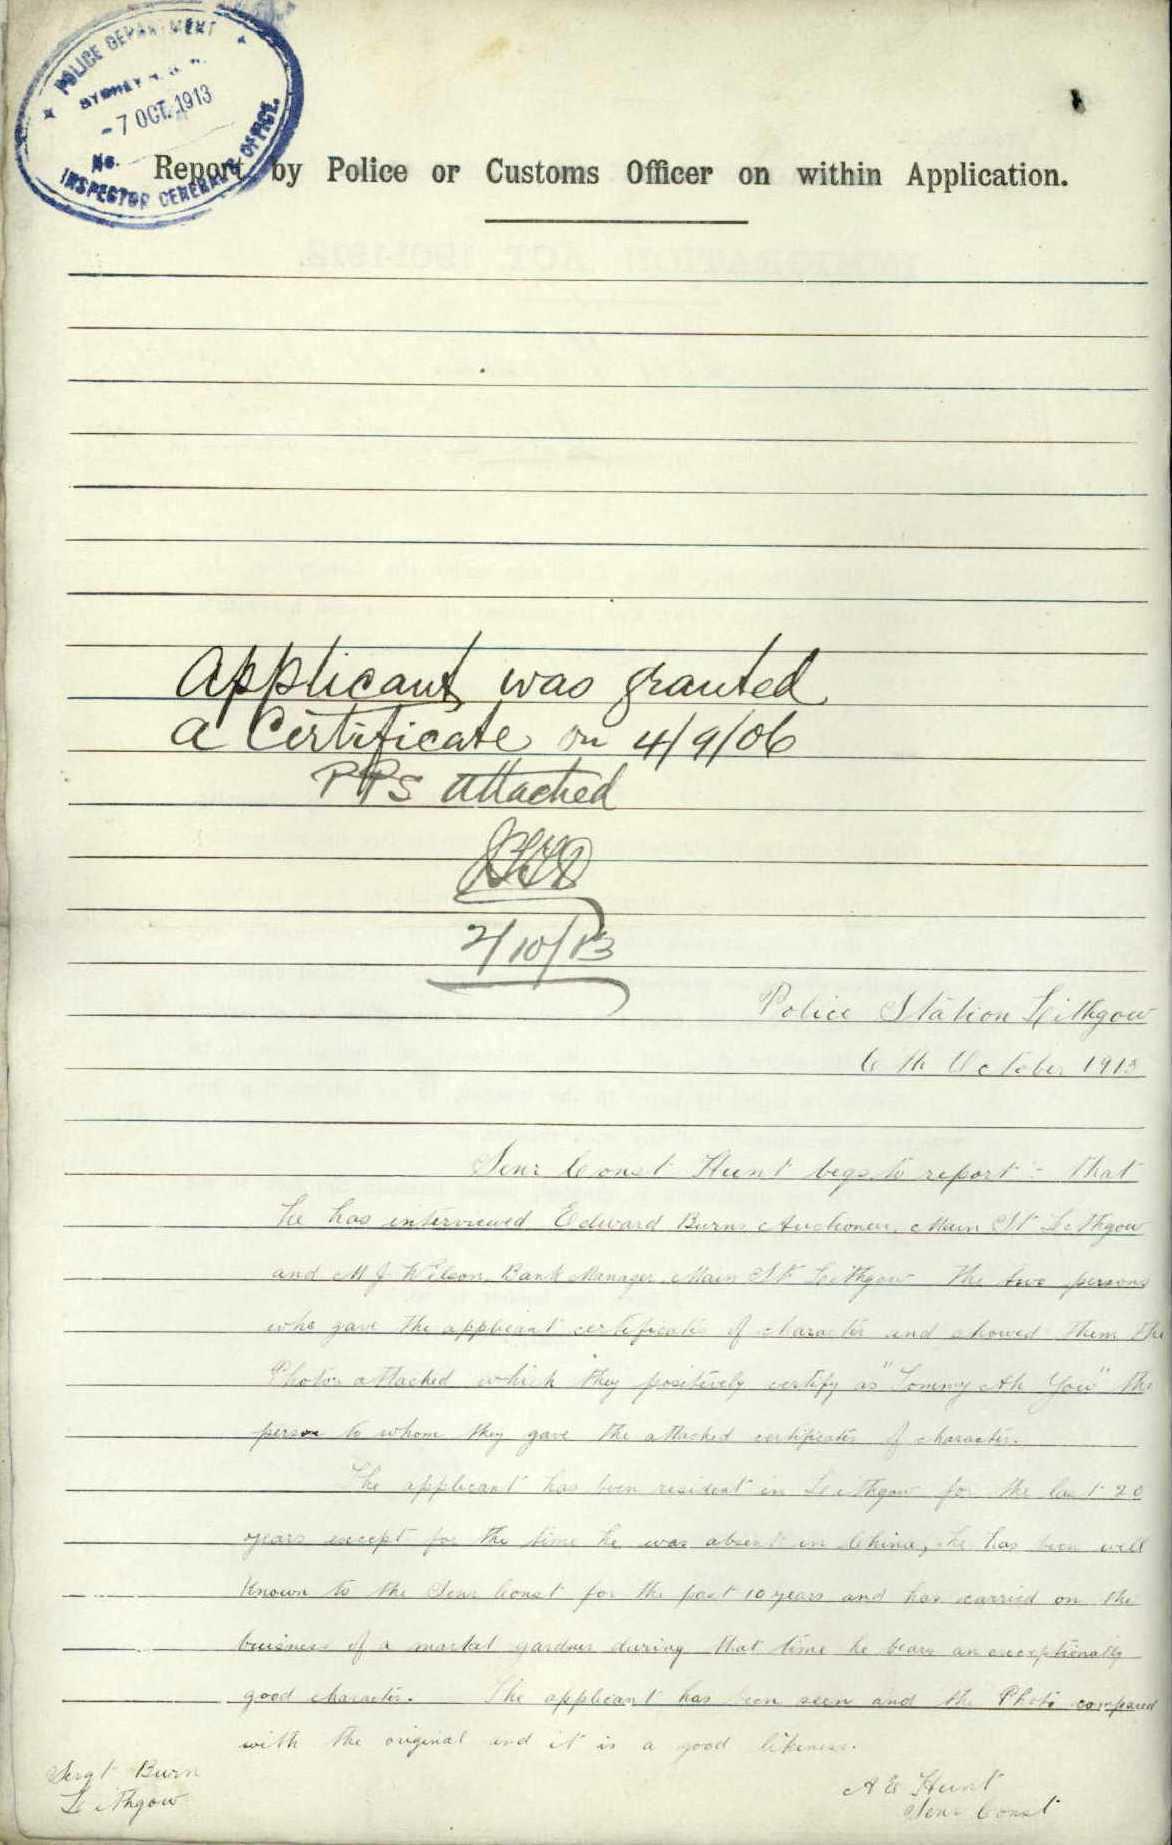 POLICE DEPARTMENT
SYDNEY N.S.W.
-7 OCT. 1913
No.
INSPECTOR GENERAL'S OFFICE.
Report by Police or Customs Officer on within Application.
Applicant was granted
a Certificate on 4/9/06
PPS attached
2/10/13
Police Station Lithgow
6th October 1913
Senr Const Hunt begs to report :- that
he has interviewed Edward Burns Auctioneer, Main St Lithgow
and M J Wilson, Bank Manager, Main St Lithgow the two persons
who gave the applicant certificates of character and showed them the
Photos attached which they positively certify as "Tommy Ah You" the
person to whom they gave the attached certificates of character.
The applicant has been resident in Lithgow for the last 20
years except for the time he was absent in China, he has been well
known to the Senr Const for the past 10 years and has carried on the
buisness of a market gardner during that time he bears an exceptionally
good character. The applicant has been seen and the Photo compared
with the original and it is a good likeness.
Sergt Burn
Lithgow
A E Hunt
Senr Const